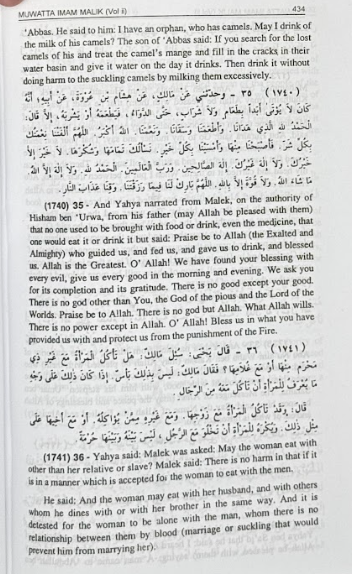 MUWATTA IMAM MALIK (Vol ii) 434
'Abbas. He said to him: I have an orphan, who has camels. May I drink of
the milk of his camels? The son of 'Abbas said: If you search for the lost
camels of his and treat the camel's mange and fill in the cracks in their
water basin and give it water on the day it drinks. Then drink it without
doing harm to the suckling camels by milking them excessively.
(١٧٤٠) ٣٥ - وحدثني عَنْ مَالِكٍ، عَنْ هِشَامِ بْنِ عُرْوَةَ، عَنْ أَبِيهِ، أَنَّهُ
كَانَ لَا يُؤْتَى أَبَداً بِطَعَامٍ وَلَا شَرَابٍ، حَتَّى الدَّوَاءُ، فَيَطْعَمَهُ أَوْ يَشْرَبَهُ، إِلَّا قَالَ:
الْحَمْدُ لِلَّهِ الَّذِي هَدَانَا. وَأَطْعَمَنَا وَسَقَانَا. وَنَعَّمَنَا. اللَّهُ أَكْبَرُ. اللَّهُمَّ أَلْفَتْنَا نِعْمَتُكَ
بِكُلِّ شَرٍّ. فَأَصْبَحْنَا مِنْهَا وَأَمْسَيْنَا بِكُلِّ خَيْرٍ. نَسْأَلُكَ تَمَامَهَا وَشُكْرَهَا. لَا خَيْرَ إِلَّا
خَيْرُكَ. وَلَا إِلَهَ غَيْرُكَ. إِلَهَ الصَّالِحِينَ. وَرَبَّ الْعَالَمِينَ. الْحَمْدُ لِلَّهِ. وَلَا إِلَهَ إِلَّا اللَّهُ.
مَا شَاءَ اللَّهُ. وَلَا قُوَّةَ إِلَّا بِاللَّهِ. اللَّهُمَّ بَارِكْ لَنَا فِيمَا رَزَقْتَنَا. وَقِنَا عَذَابَ النَّارِ.
(1740) 35 - And Yahya narrated from Malek, on the authority of
Hisham ben 'Urwa, from his father (may Allah be pleased with them)
that no one used to be brought with food or drink, even the medicine, that
one would eat it or drink it but said: Praise be to Allah (the Exalted and
Almighty) who guided us, and fed us, and gave us to drink, and blessed
us. Allah is the Greatest. O' Allah! We have found your blessing with
every evil, give us every good in the morning and evening. We ask you
for its completion and its gratitude. There is no good except your good.
There is no god other than You, the God of the pious and the Lord of the
Worlds. Praise be to Allah. There is no god but Allah. What Allah wills.
There is no power except in Allah. O' Allah! Bless us in what you have
provided us with and protect us from the punishment of the Fire.
(١٧٤١) ٣٦ - قَالَ يَحْيَى: سُئِلَ مَالِكٌ: هَلْ تَأْكُلُ الْمَرْأَةُ مَعَ غَيْرِ ذِي
مَحْرَمٍ مِنْهَا أَوْ مَعَ غُلَامِهَا؟ فَقَالَ مَالِكٌ: لَيْسَ بِذَلِكَ بَأْسٌ. إِذَا كَانَ ذَلِكَ عَلَى وَجْهِ
مَا يُعْرَفُ لِلْمَرْأَةِ أَنْ تَأْكُلَ مَعَهُ مِنَ الرِّجَالِ.
قَالَ: وَقَدْ تَأْكُلُ الْمَرْأَةُ مَعَ زَوْجِهَا. وَمَعَ غَيْرِهِ مِمَّنْ يُؤَاكِلُهُ. أَوْ مَعَ أَخِيهَا عَلَى
مِثْلِ ذَلِكَ. وَيُكْرَهُ لِلْمَرْأَةِ أَنْ تَخْلُوَ مَعَ الرَّجُلِ، لَيْسَ بَيْنَهُ وَبَيْنَهَا حُرْمَةٌ.
(1741) 36 - Yahya said: Malek was asked: May the woman eat with
other than her relative or slave? Malek said: There is no harm in that if it
is in a manner which is accepted for the woman to eat with the men.
He said: And the woman may eat with her husband, and with others
whom he dines with or with her brother in the same way. And it is
detested for the woman to be alone with the man, whom there is no
relationship between them by blood (marriage or suckling that would
prevent him from marrying her).